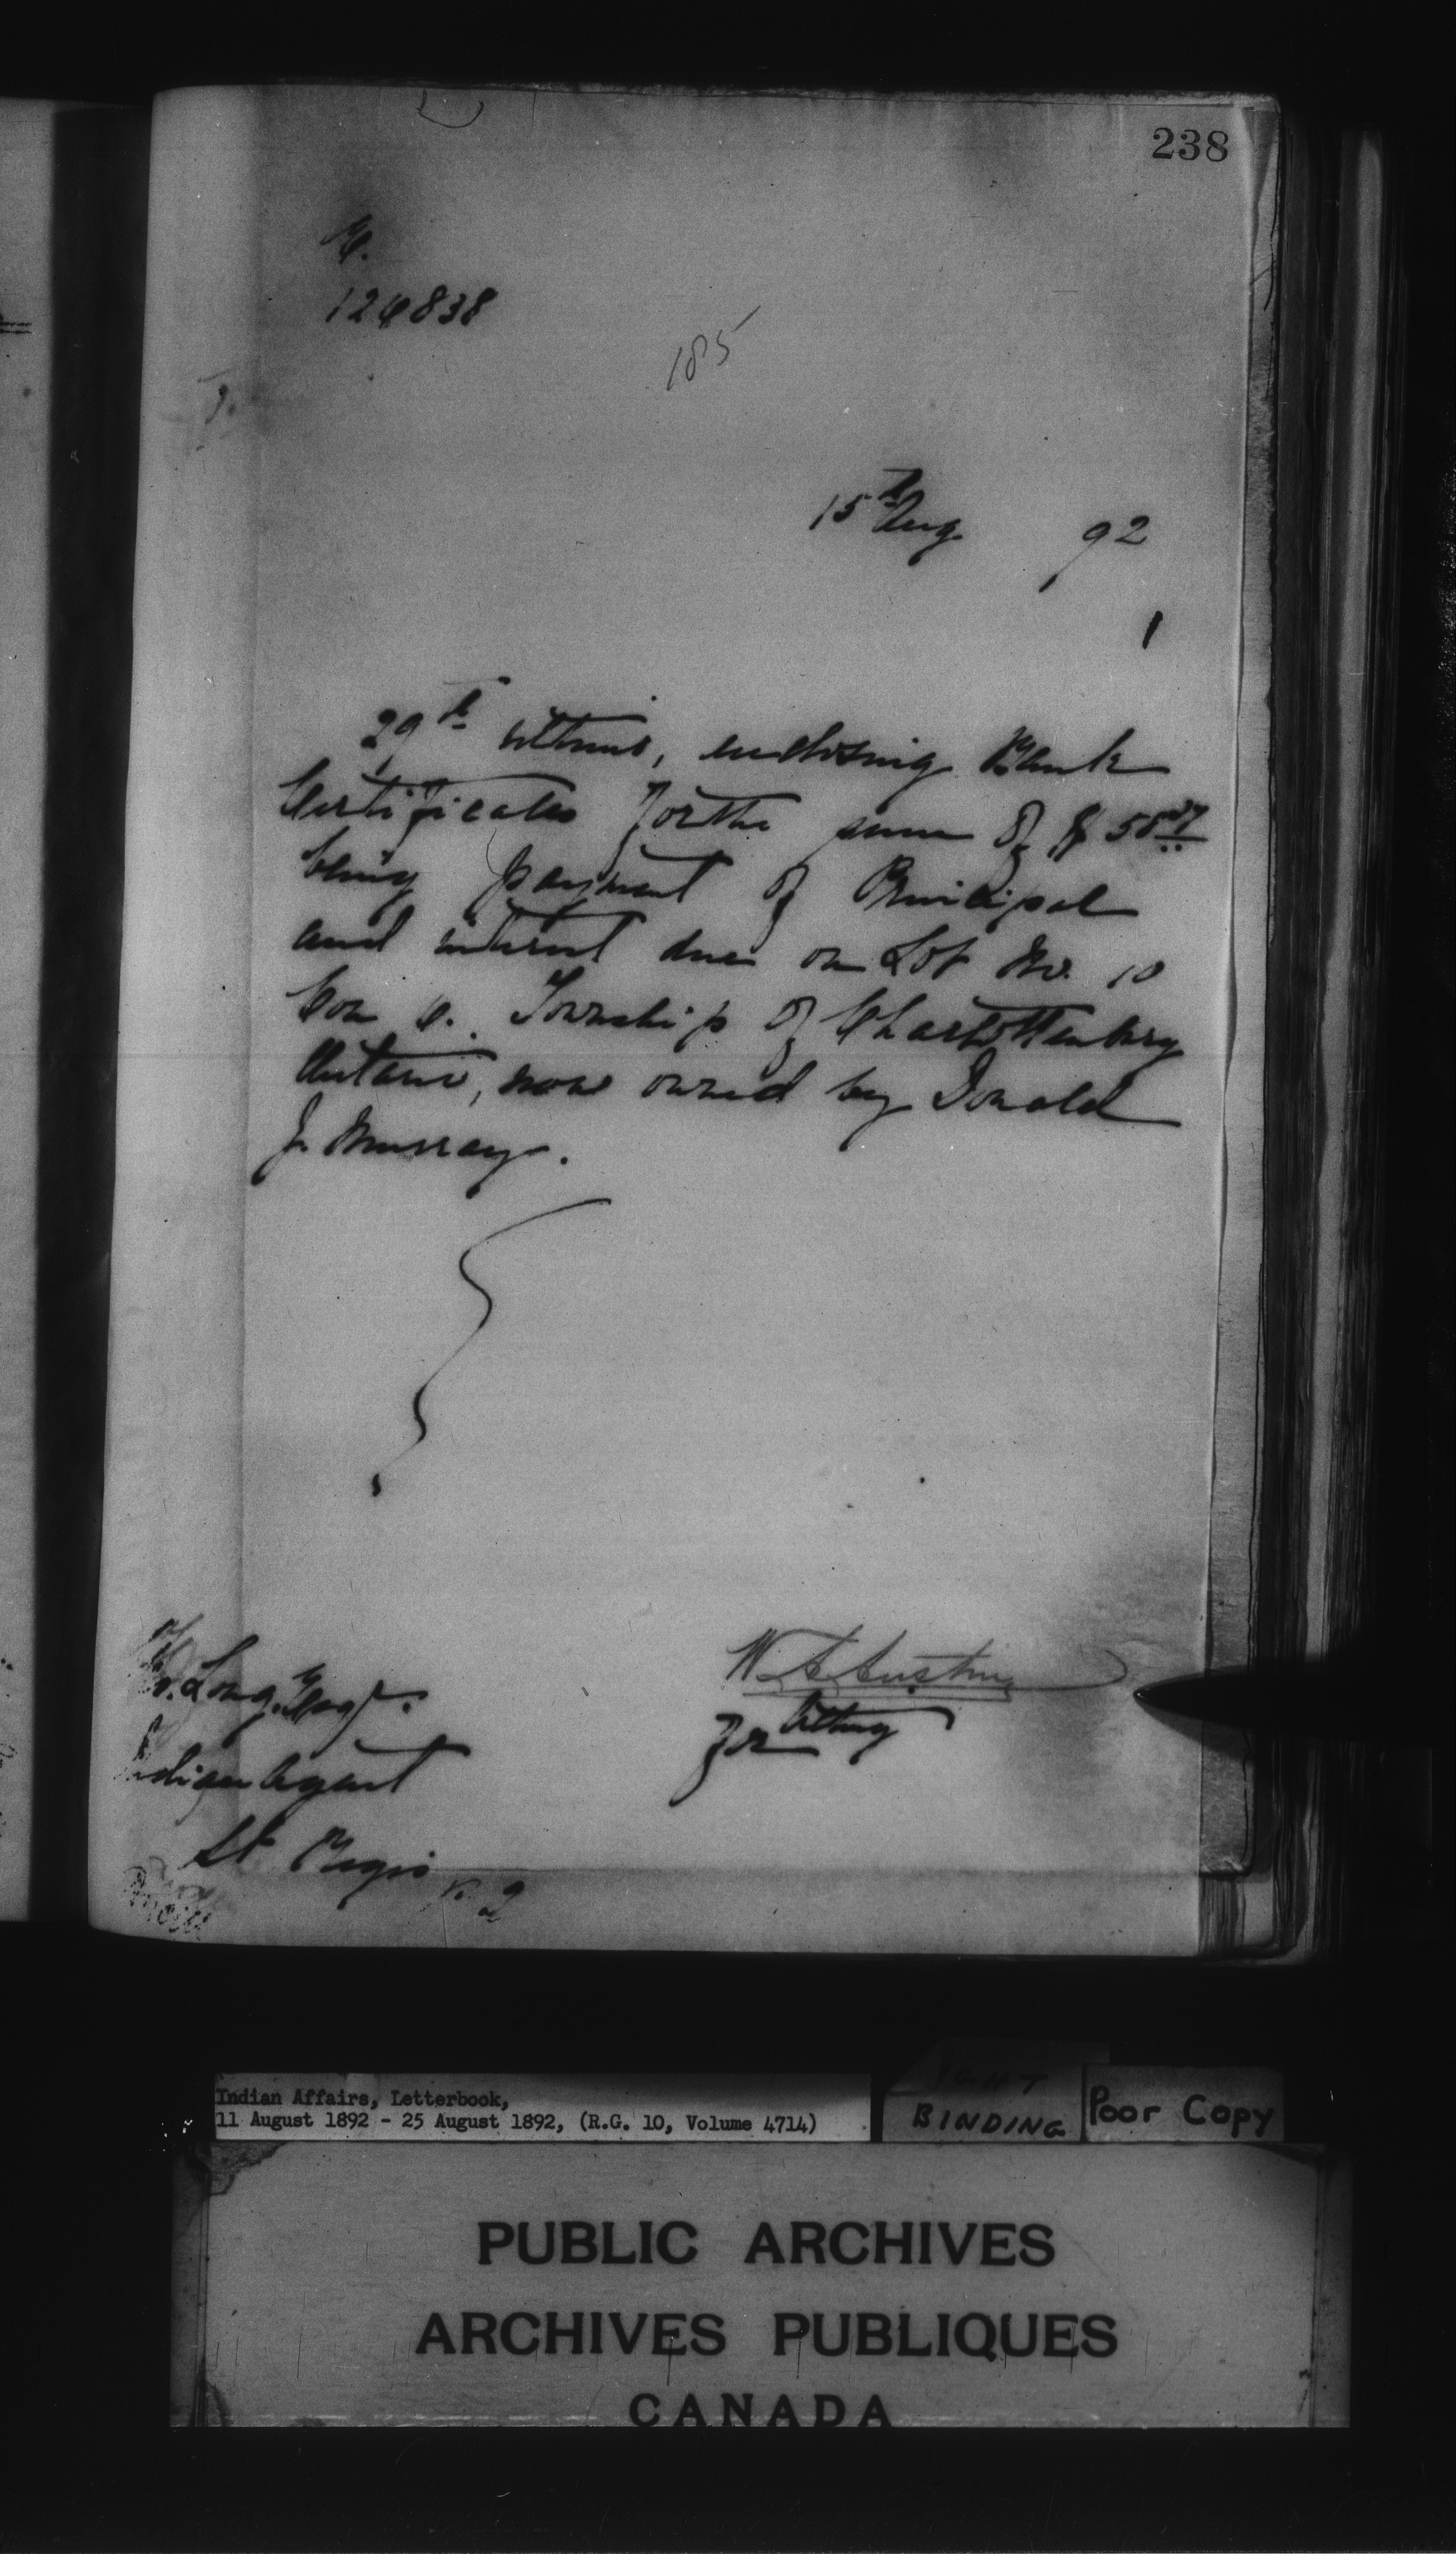 238
124838
185
15th Aug 92
1
29th ultimo, enclosing Bank
Certificates for the sum of $
being payment of Principal
and interest due on Lot No. 10
Con Township of Charlottenburg
Ontario, now owned by Donald
J. Murray.
Long, Esqr.
W. A. Austin
For Acting
Indian Agent
St Regis
Indian Affairs, Letterbook,
11 August 1892 - 25 August 1892, (R.G. 10, Volume 4714)
BINDING
Poor Copy
PUBLIC ARCHIVES
ARCHIVES PUBLIQUES
CANADA